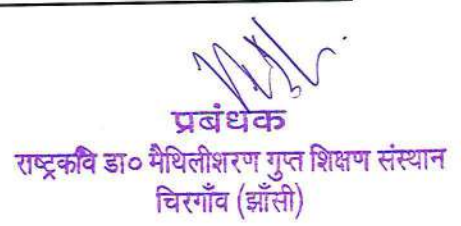 प्रबंधक
राष्ट्रकवि डा० मैथिलीशरण गुप्त शिक्षण संस्थान
चिरगाँव (झाँसी)